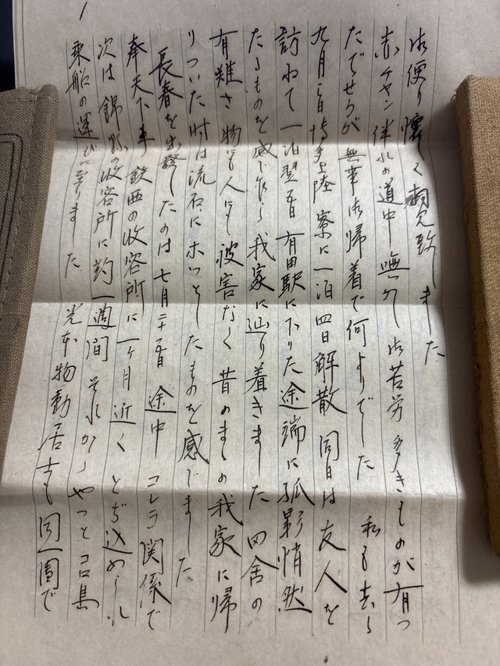 1
お便り懐しく拝見致しました
赤チャン伴れの道中嘸かしお苦労多きものが有っ
たでせうが無事御帰着で何よりでした 私も去る
九月三日博多上陸 寮に一泊 四日解散 同日は友人を
訪ねて一泊翌五日有田駅に下りた途端に孤影悄然
たるものを感じたら我家に辿り着きました 田舎の
有難さ物にも人にも被害なく昔のまゝの我家に帰
りついた時は流石にホッとしたものを感じました
長春を出発したのは七月二十五日 途中コレラ関係で
奉天下車 鉄西の収容所に一ヶ月近くとぢ込められ
次は錦縣の収容所に約一週間 それからやっとコロ島
乗船の運びになりました 物動居士も同一團で